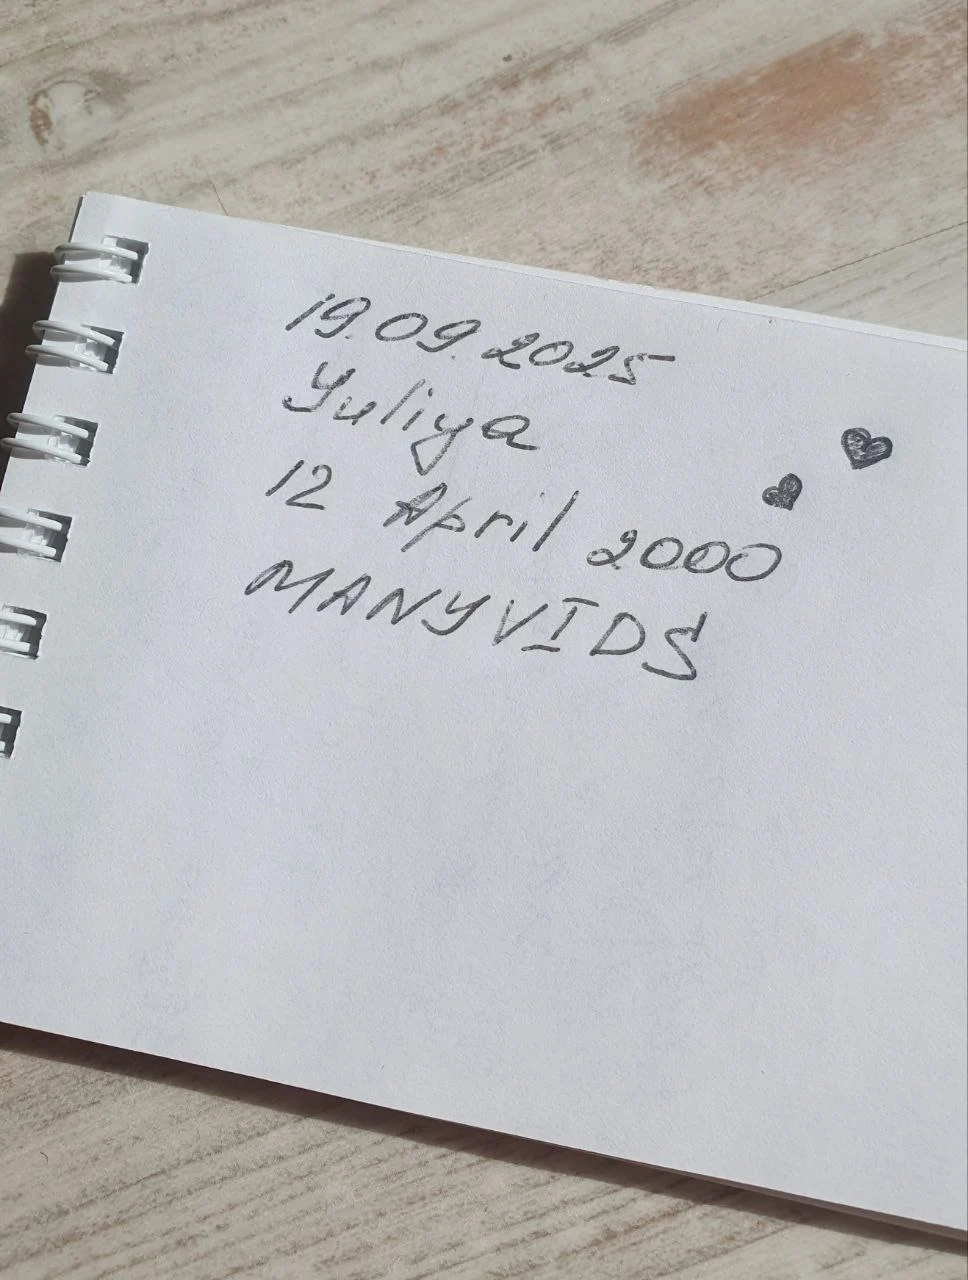 19.09.2025
Yuliya
12 April 2000
MANYVIDS